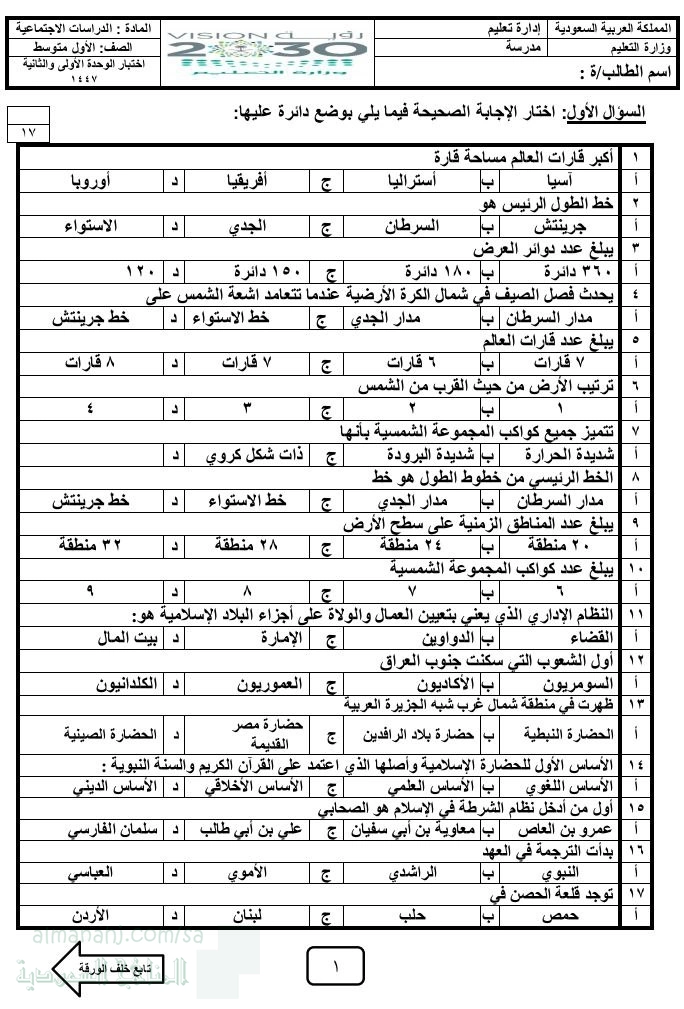 المملكة العربية السعودية
وزارة التعليم
اسم الطالب/ة :
إدارة تعليم
مدرسة
VISION رؤيـــة
2030
وزارة التعليم
المادة : الدراسات الاجتماعية
الصف: الأول متوسط
اختبار الوحدة الأولى والثانية
١٤٤٧
السؤال الأول: اختار الإجابة الصحيحة فيما يلي بوضع دائرة عليها:
١٧
١ أكبر قارات العالم مساحة قارة
أ آسيا ب أستراليا ج أفريقيا د أوروبا
٢ خط الطول الرئيس هو
أ جرينتش ب السرطان ج الجدي د الاستواء
٣ يبلغ عدد دوائر العرض
أ ٣٦٠ دائرة ب ١٨٠ دائرة ج ١٥٠ دائرة د ١٢٠
٤ يحدث فصل الصيف في شمال الكرة الأرضية عندما تتعامد اشعة الشمس على
أ مدار السرطان ب مدار الجدي ج خط الاستواء د خط جرينتش
٥ يبلغ عدد قارات العالم
أ ٧ قارات ب ٦ قارات ج ٧ قارات د ٨ قارات
٦ ترتيب الأرض من حيث القرب من الشمس
أ ١ ب ٢ ج ٣ د ٤
٧ تتميز جميع كواكب المجموعة الشمسية بأنها
أ شديدة الحرارة ب شديدة البرودة ج ذات شكل كروي د
٨ الخط الرئيسي من خطوط الطول هو خط
أ مدار السرطان ب مدار الجدي ج خط الاستواء د خط جرينتش
٩ يبلغ عدد المناطق الزمنية على سطح الأرض
أ ٢٠ منطقة ب ٢٤ منطقة ج ٢٨ منطقة د ٣٢ منطقة
١٠ يبلغ عدد كواكب المجموعة الشمسية
أ ٦ ب ٧ ج ٨ د ٩
١١ النظام الإداري الذي يعني بتعيين العمال والولاة على أجزاء البلاد الإسلامية هو:
أ القضاء ب الدواوين ج الإمارة د بيت المال
١٢ أول الشعوب التي سكنت جنوب العراق
أ السومريون ب الأكاديون ج العموريون د الكلدانيون
١٣ ظهرت في منطقة شمال غرب شبه الجزيرة العربية
أ الحضارة النبطية ب حضارة بلاد الرافدين ج حضارة مصر القديمة د الحضارة الصينية
١٤ الأساس الأول للحضارة الإسلامية وأصلها الذي اعتمد على القرآن الكريم والسنة النبوية :
أ الأساس اللغوي ب الأساس العلمي ج الأساس الأخلاقي د الأساس الديني
١٥ أول من أدخل نظام الشرطة في الإسلام هو الصحابي
أ عمرو بن العاص ب معاوية بن أبي سفيان ج علي بن أبي طالب د سلمان الفارسي
١٦ بدأت الترجمة في العهد
أ النبوي ب الراشدي ج الأموي د العباسي
١٧ توجد قلعة الحصن في
أ حمص ب حلب ج لبنان د الأردن
almanahj.com/sa
المناهج السعودية
١
تابع خلف الورقة